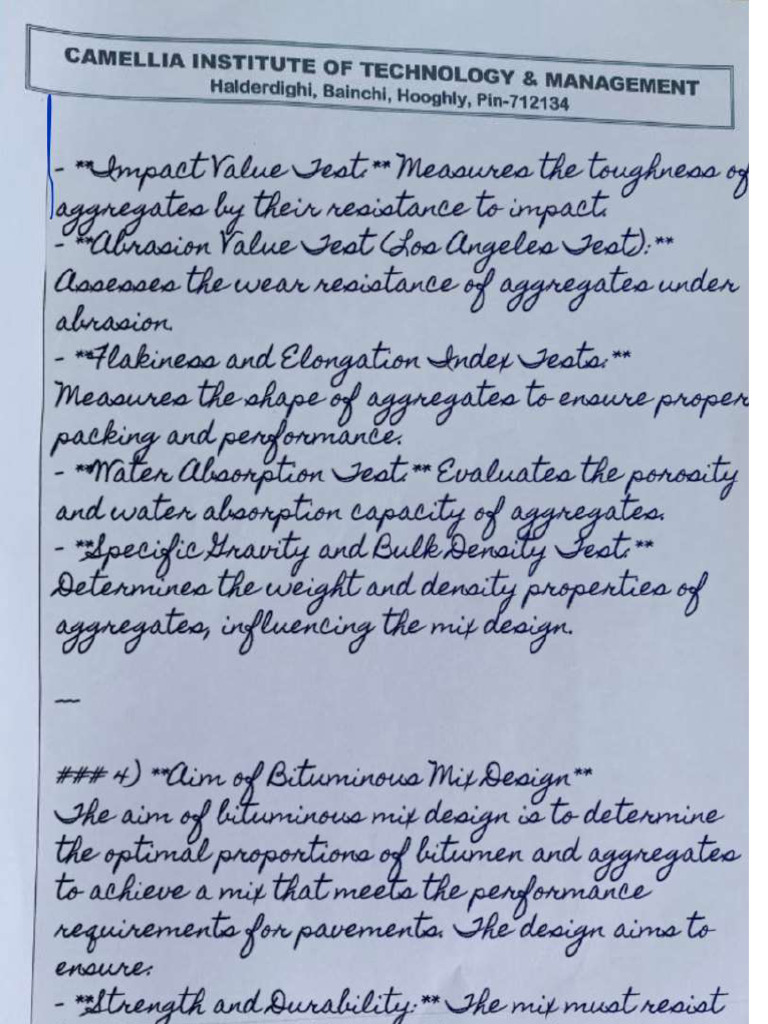 CAMELLIA INSTITUTE OF TECHNOLOGY & MANAGEMENT
Halderdighi, Bainchi, Hooghly, Pin-712134
- **Impact Value Test:** Measures the toughness of
aggregates by their resistance to impact.
- **Abrasion Value Test (Los Angeles Test):**
Assesses the wear resistance of aggregates under
abrasion.
- **Flakiness and Elongation Index Tests:**
Measures the shape of aggregates to ensure proper
packing and performance.
- **Water Absorption Test:** Evaluates the porosity
and water absorption capacity of aggregates.
- **Specific Gravity and Bulk Density Test:**
Determines the weight and density properties of
aggregates, influencing the mix design.
---
### 4) **Aim of Bituminous Mix Design**
The aim of bituminous mix design is to determine
the optimal proportions of bitumen and aggregates
to achieve a mix that meets the performance
requirements for pavements. The design aims to
ensure:
- **Strength and Durability:** The mix must resist